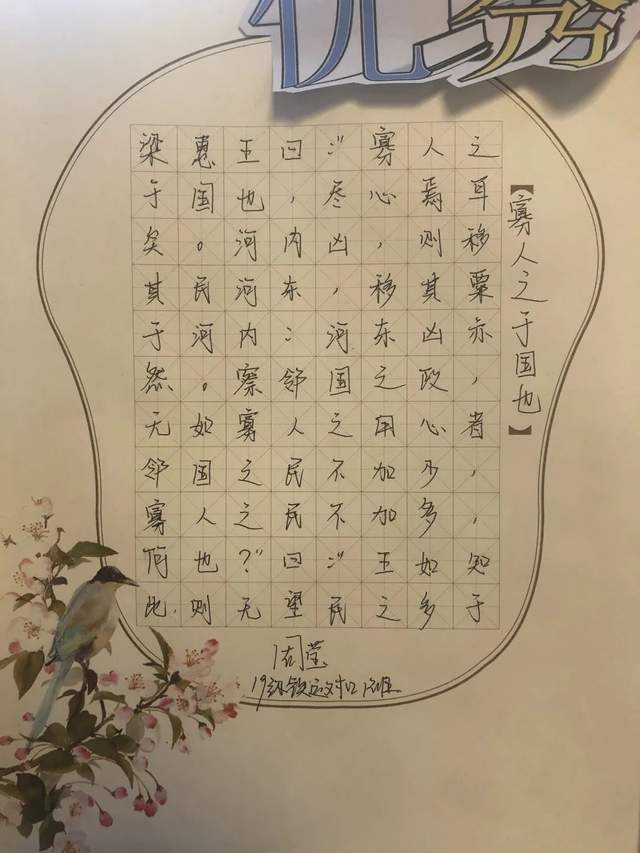 优秀
【寡人之于国也】
梁惠王曰：“寡人之
于国也，尽心焉耳
矣。河内凶，则移
其民河东，移其粟
于河内：河东凶亦
然。察邻国之政，
无如寡人之用心者
邻国之民不加少，
寡人之民不加多，
何也？”曰：“王如知
此，则无望民之多于
周莹
19级铁运对口